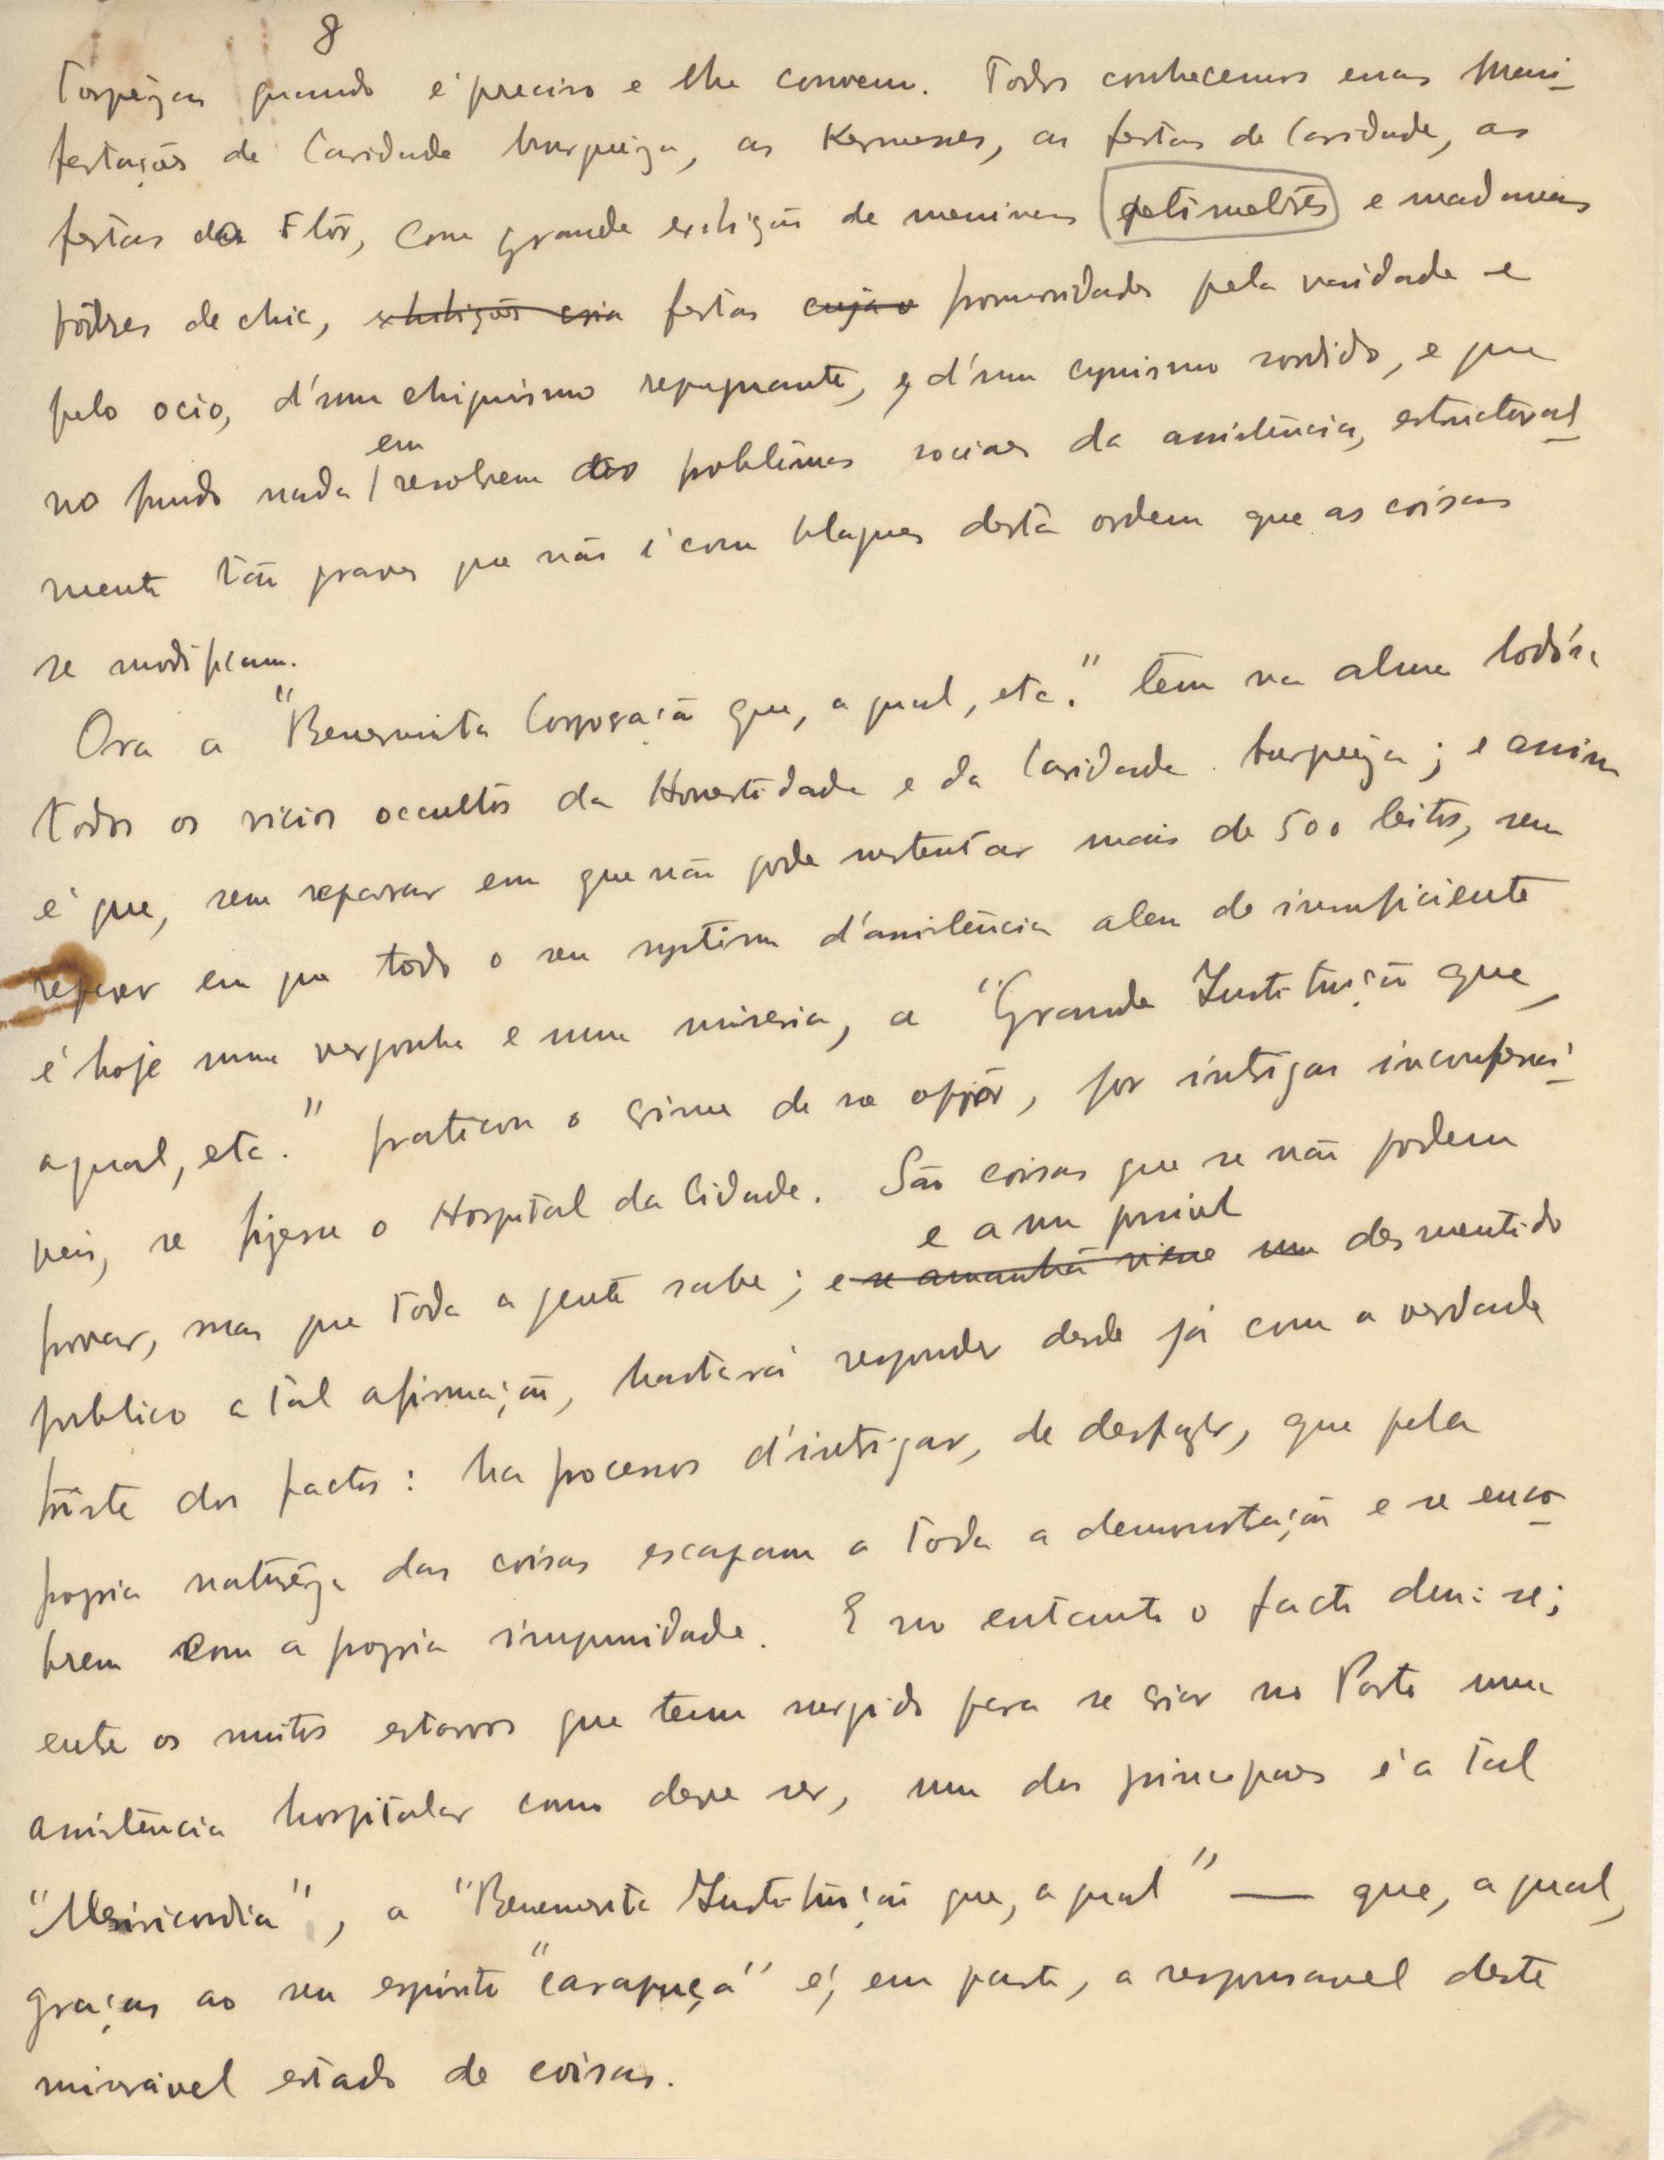 8
torpêzas quando é preciso e lhe convem. Todos conhecemos essas mani-
festações de Caridade burguêza, as Kermesses, as festas de Caridade, as
festas da Flôr, com grande exibição de meninas petimetres e madamas
pôdres de chic, exhibição essa festas cuja o promovidas pela vaidade e
pelo ocio, d'um chiquismo repugnante, e d'um cynismo sordido, e que
no fundo nada em resolvem dos problêmas sociaes da assistência, estructural-
mente tão graves que não é com blagues desta ordem que as coisas
se modificam.
Ora a "Benemerita Corporação que, a qual, etc." tem na alma
todos os vicios occultos da Honestidade e da Caridade burguêza; e assim
é que, sem reparar em que não pode sustentar mais de 500 leitos, sem
reparar em que todo o seu systêma d'assistência alem de insuficiente
é hoje uma vergonha e uma miseria, a "Grande Instituição que,
a qual, etc." praticou o crime de se opôr, por intrigas inconfessá-
veis, se fizesse o Hospital da Cidade. São coisas que se não podem
provar, mas que toda a gente sabe; e se amanhã viesse um desmentido
e a um possivel
publico a tal afirmação, bastará responder desde já com a verdade
triste dos factos: ha processos d'intrigar, de desfazer, que pela
propria naturêza das coisas escapam a toda a demonstração e se enco-
brem com a propria impunidade. E no entanto o facto deu-se;
entre os muitos estorvos que teem surgido para se criar no Porto uma
assistência hospitalar como deve ser, um dos principaes é a tal
"Misericordia", a "Benemerita Instituição que, a qual" — que, a qual,
graças ao seu espirito "carapuça" é, em parte, a responsavel deste
miserável estado de coisas.